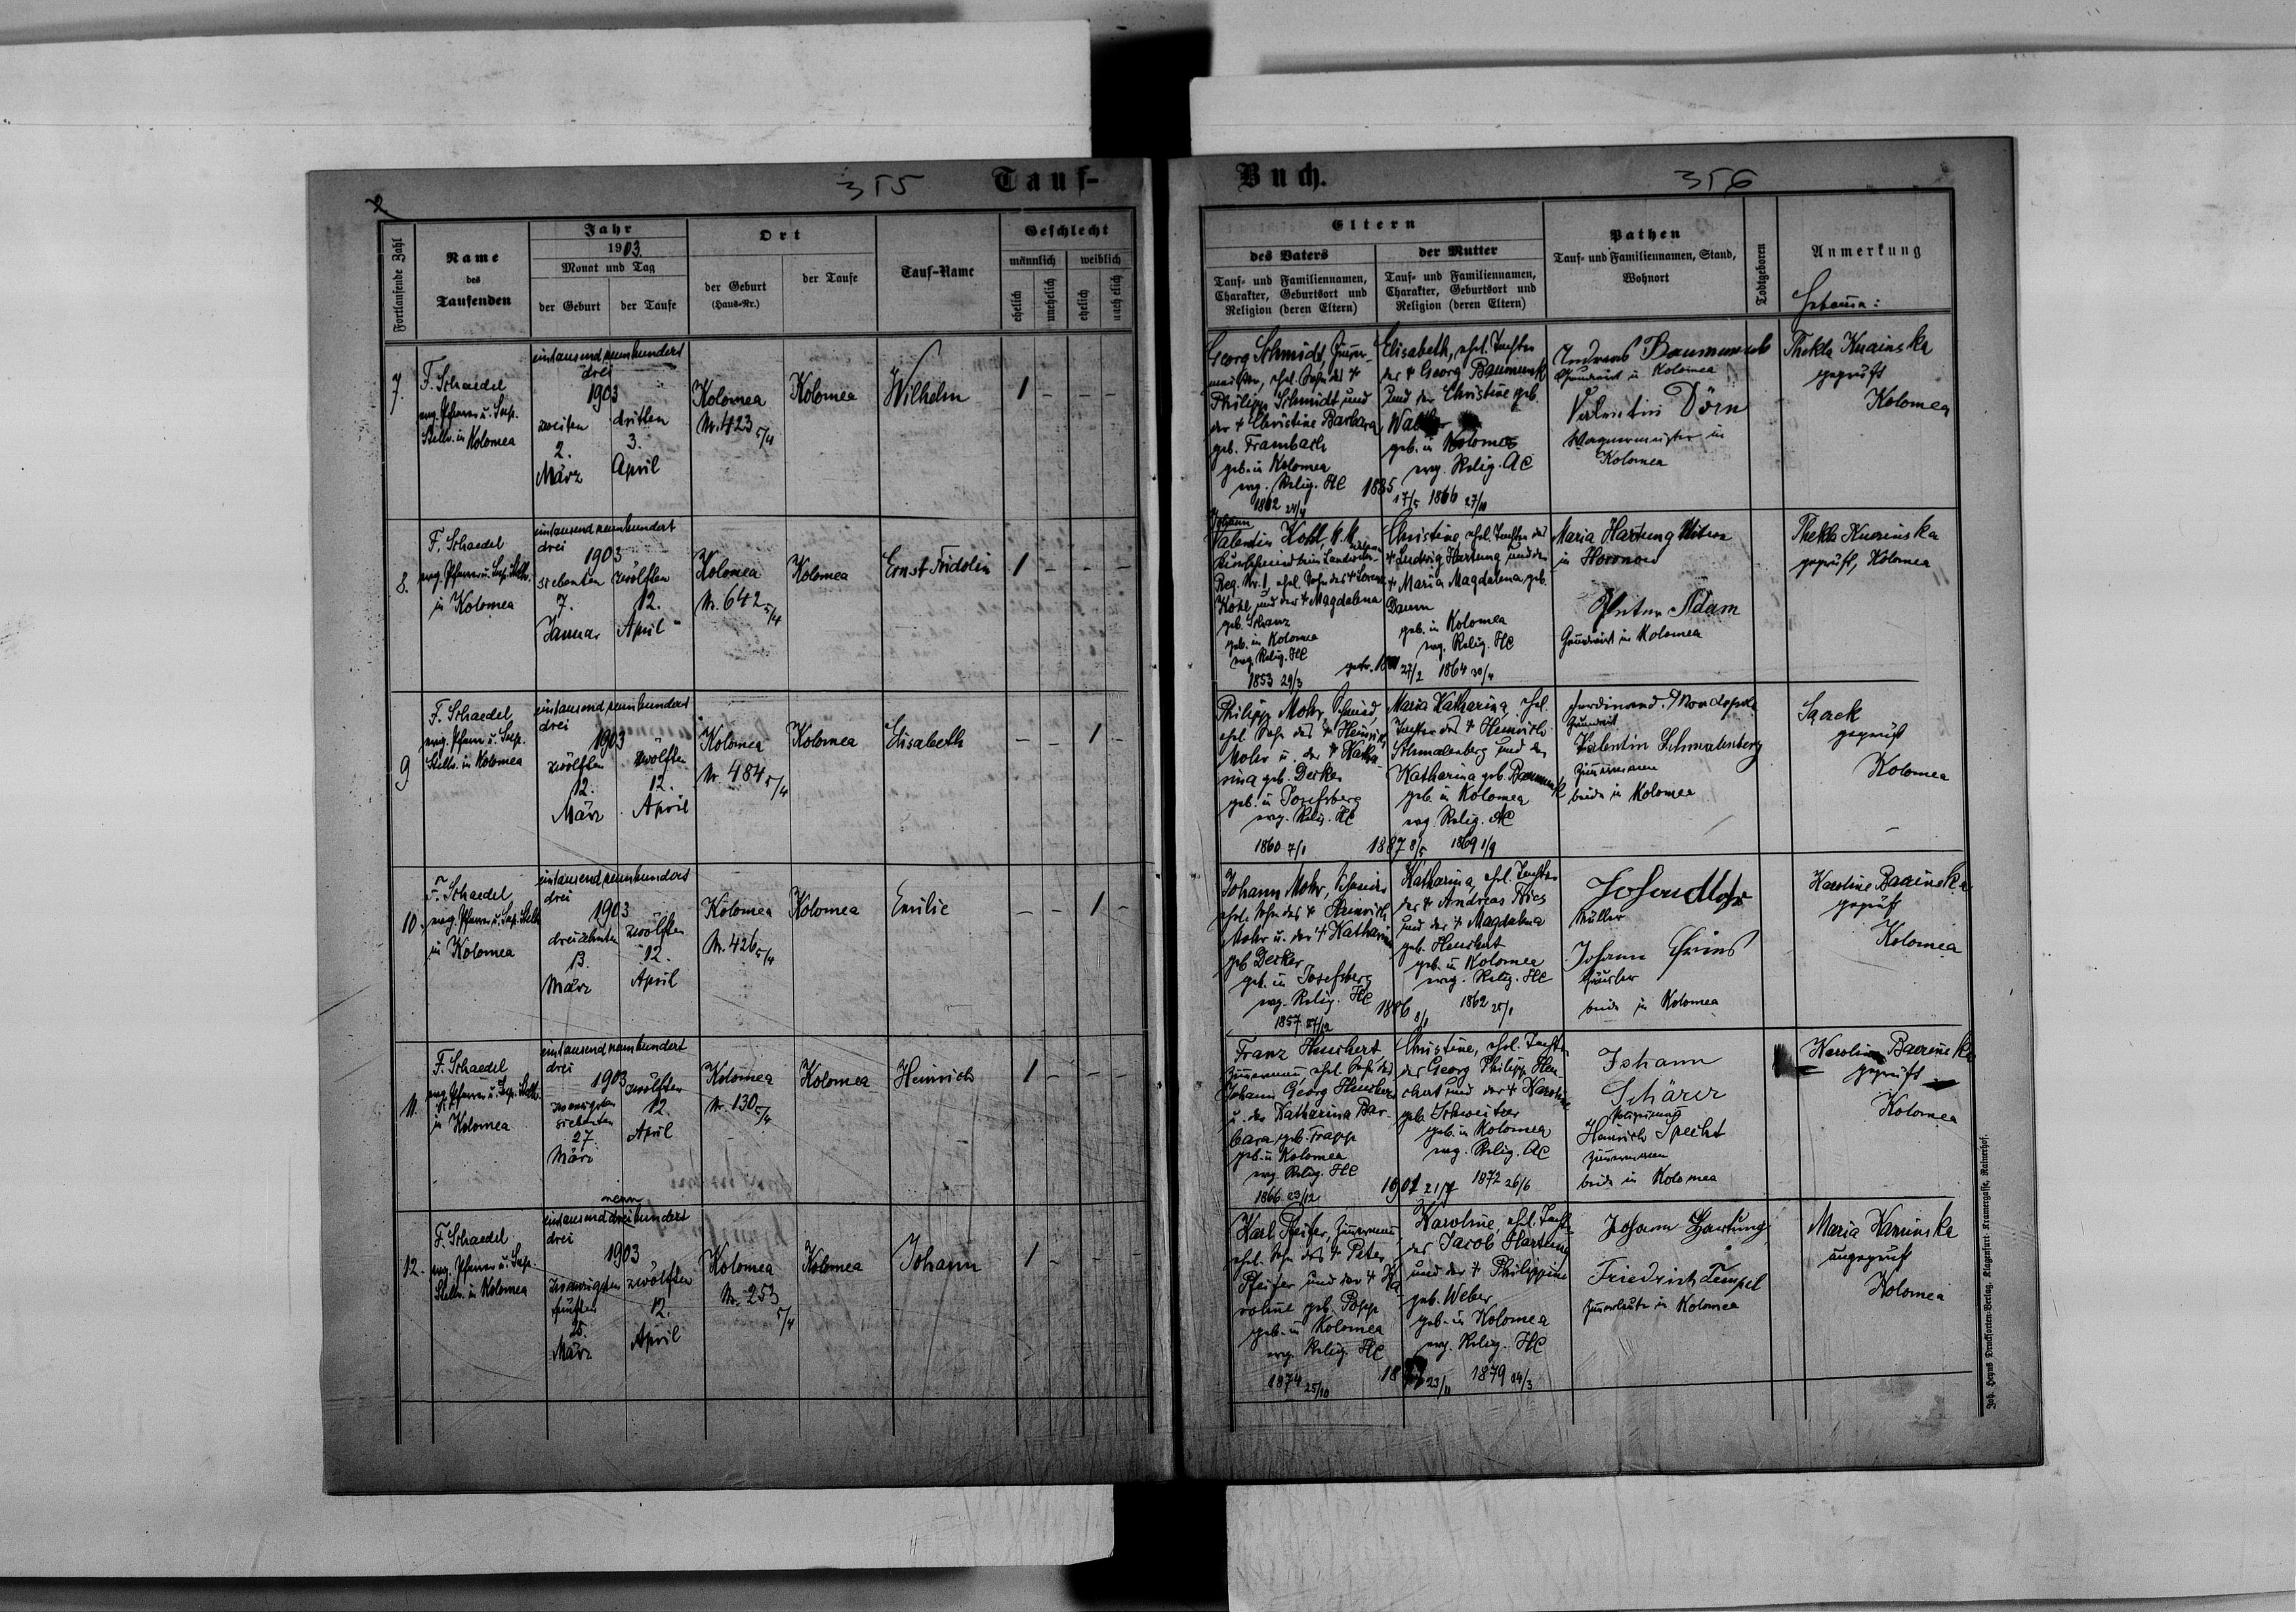 355
Tauf-
Fortlaufende Zahl
Name
des
Taufenden
Jahr
1903.
Monat und Tag
der Geburt
der Taufe
Ort
der Geburt
(Haus-Nr.)
der Taufe
Tauf-Name
Geschlecht
männlich
weiblich
ehelich
unehelich
ehelich
unehelich
7.
F. Schaedel
evg. Pfarrer u. Sup.
Stellv. in Kolomea
eintausend neunhundert
drei
1903
zweiten
2.
März
dritten
3.
April
Kolomea
Nr. 423 5/4
Kolomea
Wilhelm
1 - - -
8.
F. Schaedel
evg. Pfarrer u. Sup. Stellv.
in Kolomea
eintausend neunhundert
drei
1903
siebenten
7.
Januar
zwölften
12.
April
Kolomea
Nr. 642 5/4
Kolomea
Ernst Fridolin
1 - - -
9
F. Schaedel
evg. Pfarrer u. Sup.
Stellv. in Kolomea
eintausend neunhundert
drei
1903
zwölften
12.
März
zwölften
12.
April
Kolomea
Nr. 484 5/4
Kolomea
Elisabeth
- - 1 -
10.
F. Schaedel
evg. Pfarrer u. Sup. Stellv.
in Kolomea
eintausend neunhundert
drei
1903
dreizehnten
13.
März
zwölften
12.
April
Kolomea
Nr. 426 5/4
Kolomea
Emilie
- - 1 -
11.
F. Schaedel
evg. Pfarrer u. Sup. Stellv.
in Kolomea
eintausend neunhundert
drei
1903
zwanzigsten
siebenten
27.
März
zwölften
12.
April
Kolomea
Nr. 130 5/4
Kolomea
Heinrich
1 - - -
12.
F. Schaedel
evg. Pfarrer u. Sup.
Stellv. in Kolomea
neun
eintausend drei hundert
drei
1903
zwanzigsten
fünften
25.
März
zwölften
12.
April
Kolomea
Nr. 253
5/4
Kolomea
Johann
1 - - -
Buch.
356
Eltern
des Vaters
Tauf- und Familiennamen,
Charakter, Geburtsort und
Religion (deren Eltern)
der Mutter
Tauf- und Familiennamen,
Charakter, Geburtsort und
Religion (deren Eltern)
Pathen
Tauf- und Familiennamen, Stand,
Wohnort
Todtgeboren
Anmerkung
Georg Schmidt, Zimmer-
meister, ehel. Sohn des †
Philipp Schmidt und
der † Christine Barbara
geb. Frambach
geb. in Kolomea
evg. Relig. HC
1862 24/4
1885
17/5
Elisabeth, ehel. Tochter
des † Georg Baumunk
und der Christine geb.
geb. in Kolomea
evg. Relig. AC
1866 27/10
Andreas
Grundwirt in Kolomea
Valentin Dörn
Wagnermeister in
Kolomea
Thekla
geprüft
Kolomea
Johann
Valentin Kohl k. k.
Reg. Nr. 1, ehel. Sohn des † Lorenz
Kohl und der † Magdalena
geb. Schanz
geb. in Kolomea
evg. Relig. HC
1853 29/3
27/2
Christine, ehel. Tochter des
† Ludwig Hartung und der
† Maria Magdalena, geb.
Daum
geb. in Kolomea
evg. Relig. HC
1864 30/4
Maria Hartung
in
Peter Adam
Grundwirt in Kolomea
Thekla
geprüft, Kolomea
Philipp Mohr, Schmied,
ehel. Sohn des † Heinrich
Mohr u. der † Katha-
rina geb. Decker
geb. in Josefsberg
evg. Relig. HC
1860 7/1
1887 8/5
Maria Katharina, ehel.
Tochter des † Heinrich
Schmalenberg und der
Katharina geb. Baumunk
geb. in Kolomea
evg. Relig. AC
1869 1/9
Ferdinand
Grundwirt
Valentin Schmalenberg
Zimmermann
beide in Kolomea
geprüft
Kolomea
Johann Mohr, Schmied
ehel. Sohn des † Heinrich
Mohr u. der † Katharina
geb. Decker
geb. in Josefsberg
evg. Relig. HC
1857 27/12
1886
8/1
Katharina, ehel. Tochter
des † Andreas Fries
und der † Magdalena
geb. Heuchert
geb. in Kolomea
evg. Relig. HC
1862 25/1
Müller
Johann
beide in Kolomea
Karoline
geprüft
Kolomea
Franz Heuchert
Zimmermann ehel. Sohn des
Johann Georg Heuchert
u. der Katharina Bar-
bara geb. Trapp
geb. in Kolomea
evg. Relig. HC
1866 23/12
1901 21/7
Christine, ehel. Tochter
des Georg Philipp Heu-
chert und der † Karoline
geb. Schweitzer
geb. in Kolomea
evg. Relig. AC
1872 26/6
Johann
Schärer
Heinrich Specht
Zimmermann
beide in Kolomea
Karoline
geprüft
Kolomea
Karl Pfeifer, Zimmermann,
ehel. Sohn des † Peter
Pfeifer und der † Ka-
roline geb. Popp
geb. in Kolomea
evg. Relig. HC
1874 25/10
23/11
Karoline, ehel. Tochter
des Jacob Hartung
und der † Philippine
geb. Weber
geb. in Kolomea
evg. Relig. HC
1879 14/3
Johann Hartung
Friedrich Tempel
Zimmerleute in Kolomea
Maria
ungeprüft
Kolomea
Joh. Heyns Drucksorten-Verlag, Klagenfurt. Kramergasse, Rainerhof.